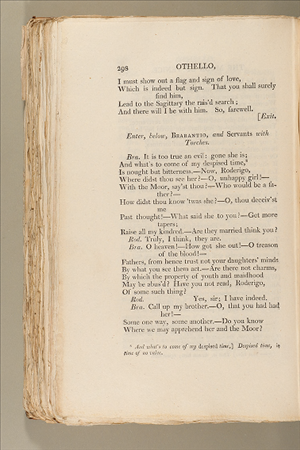 298 OTHELLO,
I must show out a flag and sign of love,
Which is indeed but sign. That you shall surely
find him,
Lead to the Sagittary the rais'd search;
And there will I be with him. So, farewell.
[Exit.
Enter, below, BRABANTIO, and Servants with
Torches.
Bra. It is too true an evil: gone she is;
And what's to come of my despised time,*
Is nought but bitterness.—Now, Roderigo,
Where didst thou see her?—O, unhappy girl!—
With the Moor, say'st thou?—Who would be a fa-
ther?—
How didst thou know 'twas she?—O, thou deceiv'st
me
Past thought!—What said she to you?—Get more
tapers;
Raise all my kindred.—Are they married think you?
Rod. Truly, I think, they are.
Bra. O heaven!—How got she out!—O treason
of the blood!—
Fathers, from hence trust not your daughters' minds
By what you see them act.—Are there not charms,
By which the property of youth and maidhood
May be abus'd? Have you not read, Roderigo,
Of some such thing?
Rod. Yes, sir; I have indeed.
Bra. Call up my brother.—O, that you had had
her!—
Some one way, some another.—Do you know
Where we may apprehend her and the Moor?
* And what's to come of my despised time,] Despised time, is
time of no value.